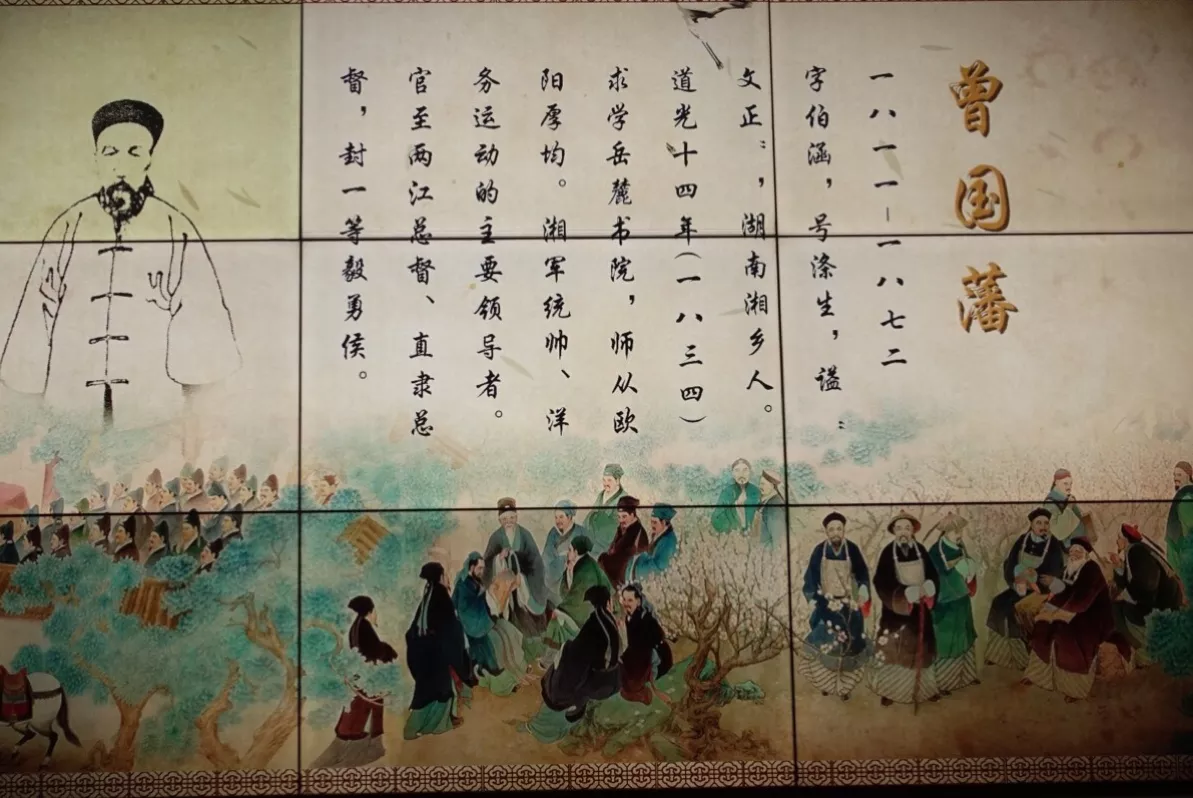 曾国藩
一八一一-一八七二
字伯涵，号涤生，谥“
文正”，湖南湘乡人。
道光十四年（一八三四）
求学岳麓书院，师从欧
阳厚均。湘军统帅、洋
务运动的主要领导者。
官至两江总督、直隶总
督，封一等毅勇侯。